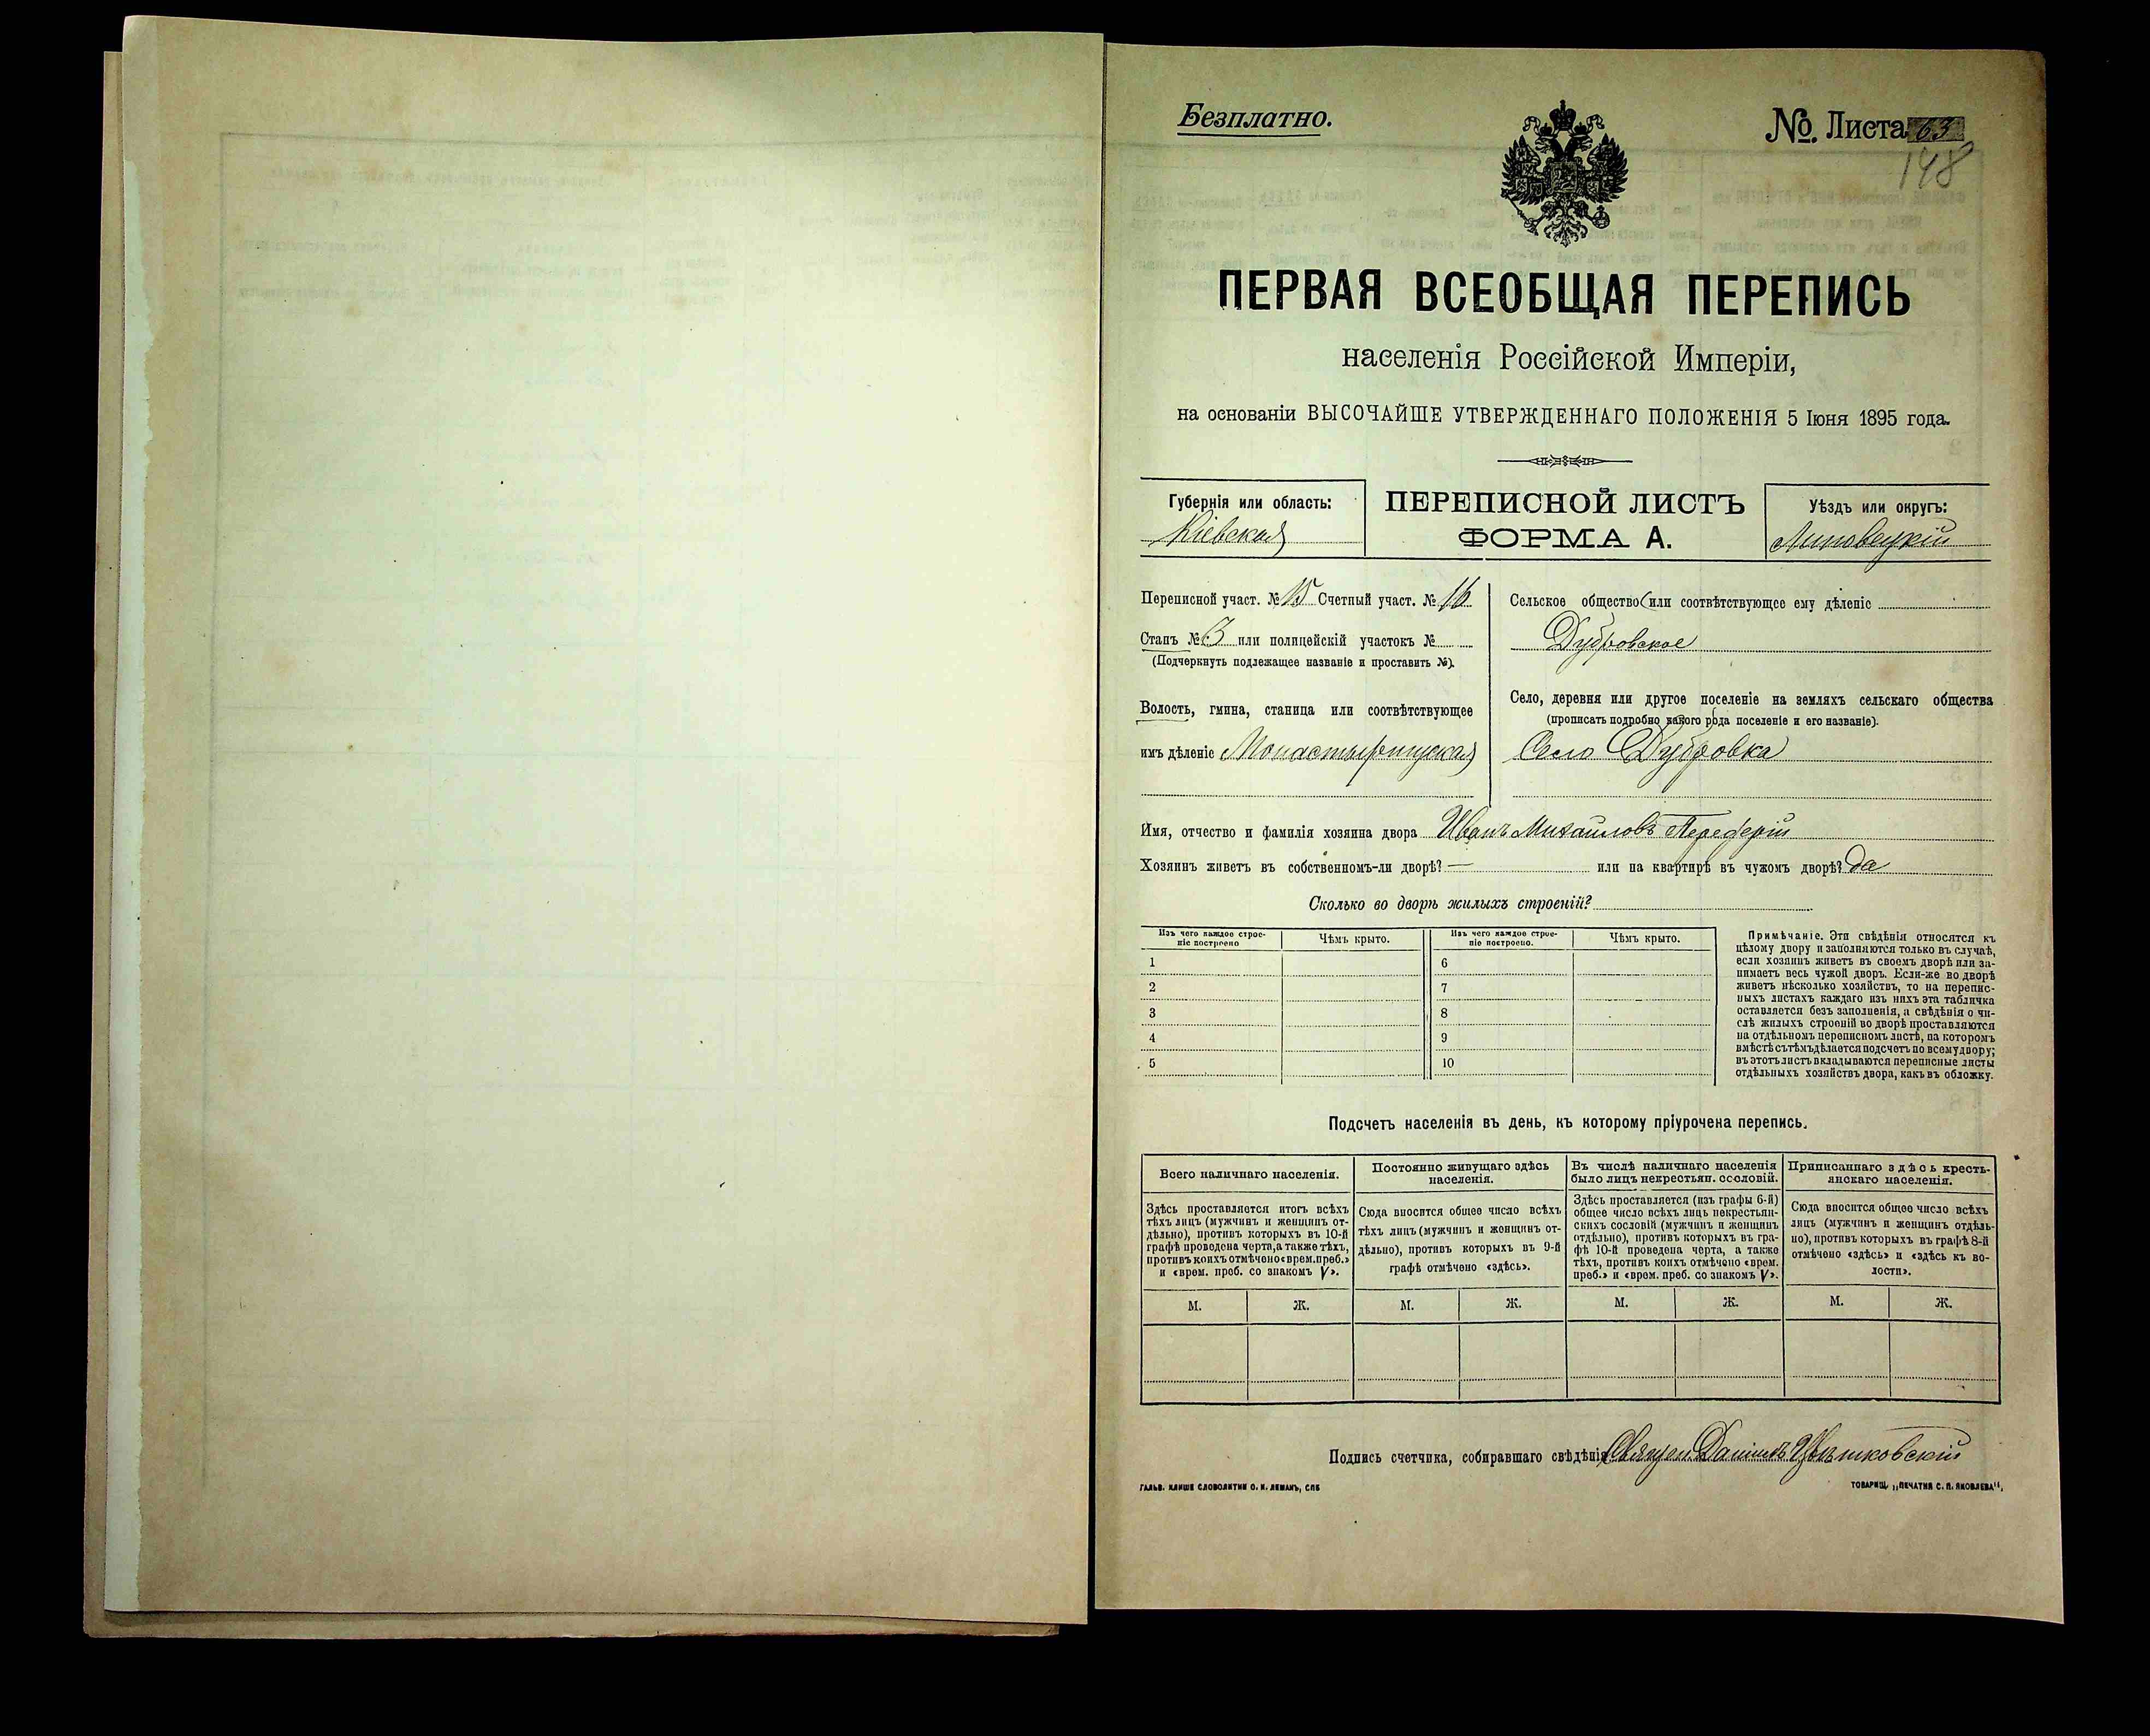 Безплатно.
№. Листа 63
148
ПЕРВАЯ ВСЕОБЩАЯ ПЕРЕПИСЬ
населенія Россійской Имперіи,
на основаніи ВЫСОЧАЙШЕ УТВЕРЖДЕННАГО ПОЛОЖЕНІЯ 5 Іюня 1895 года.
Губернія или область:
Кіевская
ПЕРЕПИСНОЙ ЛИСТЪ
ФОРМА А.
Уѣздъ или округъ:
Липовецкій
Переписной участ. № 15 Счетный участ. № 16
Станъ № 3 или полицейскій участокъ №
(Подчеркнуть подлежащее названіе и проставить №).
Волость, гмина, станица или соотвѣтствующее
имъ дѣленіе Монастырищская
Сельское общество (или соотвѣтствующее ему дѣленіе
Дубровское
Село, деревня или другое поселеніе на земляхъ сельскаго общества
(прописать подробно какого рода поселеніе и его названіе).
Село Дубровка
Имя, отчество и фамилія хозяина двора Иванъ Михайловъ Передерій
Хозяинъ живетъ въ собственномъ-ли дворѣ? — или на квартирѣ въ чужомъ дворѣ? да
Сколько во дворѣ жилыхъ строеній?
Изъ чего каждое строе-
ніе построено
Чѣмъ крыто.
Изъ чего каждое строе-
ніе построено.
Чѣмъ крыто.
1
2
3
4
5
6
7
8
9
10
Примѣчаніе. Эти свѣдѣнія относятся къ
цѣлому двору и заполняются только въ случаѣ,
если хозяинъ живетъ въ своемъ дворѣ или за-
нимаетъ весь чужой дворъ. Если-же во дворѣ
живетъ нѣсколько хозяйствъ, то на перепис-
ныхъ листахъ каждаго изъ нихъ эта табличка
оставляется безъ заполненія, а свѣдѣнія о чи-
слѣ жилыхъ строеній во дворѣ проставляются
на отдѣльномъ переписномъ листѣ, на которомъ
вмѣстѣ съ тѣмъ дѣлается подсчетъ по всему двору;
въ этотъ листъ вкладываются переписные листы
отдѣльныхъ хозяйствъ двора, какъ въ обложку.
Подсчетъ населенія въ день, къ которому пріурочена перепись.
Всего наличнаго населенія.
Здѣсь проставляется итогъ всѣхъ
тѣхъ лицъ (мужчинъ и женщинъ от-
дѣльно), противъ которыхъ въ 10-й
графѣ проведена черта, а также тѣхъ,
противъ коихъ отмѣчено «врем. преб.»
и «врем. преб. со знакомъ V».
Постоянно живущаго здѣсь
населенія.
Сюда вносится общее число всѣхъ
тѣхъ лицъ (мужчинъ и женщинъ от-
дѣльно), противъ которыхъ въ 9-й
графѣ отмѣчено «здѣсь».
Въ числѣ наличнаго населенія
было лицъ некрестьян. сословій.
Здѣсь проставляется (изъ графы 6-й)
общее число всѣхъ лицъ некрестьян-
скихъ сословій (мужчинъ и женщинъ
отдѣльно), противъ которыхъ въ гра-
фѣ 10-й проведена черта, а также
тѣхъ, противъ коихъ отмѣчено «врем.
преб.» и «врем. преб. со знакомъ V».
Приписаннаго здѣсь кресть-
янскаго населенія.
Сюда вносится общее число всѣхъ
лицъ (мужчинъ и женщинъ отдѣль-
но), противъ которыхъ въ графѣ 8-й
отмѣчено «здѣсь» и «здѣсь къ во-
лости».
М. Ж. М. Ж. М. Ж. М. Ж.
Подпись счетчика, собиравшаго свѣдѣнія Священ. Даніилъ
ГАЛЬВ. КЛИШЕ СЛОВОЛИТНИ О. И. ЛЕМАНЪ, СПБ
ТОВАРИЩ. „ПЕЧАТНЯ С. П. ЯКОВЛЕВА".